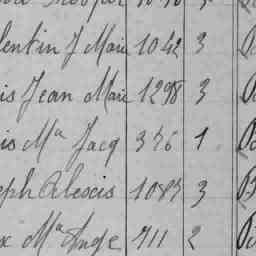 lentin J Marie 1042 3
is Jean Marie 1298 3
is Ma Jacq 376 1
eph Alexis 1087 3
x Ma Ange 711 2